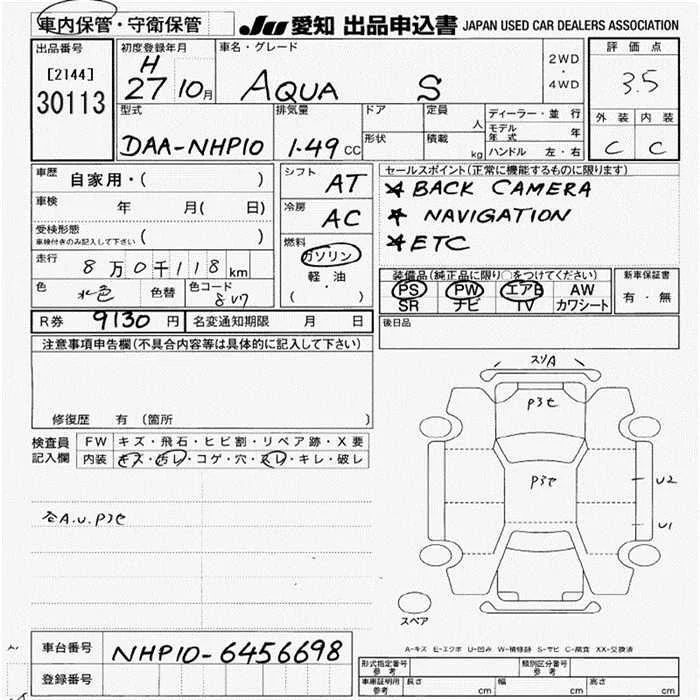 車内保管・守衛保管 JU 愛知 出品申込書 JAPAN USED CAR DEALERS ASSOCIATION
出品番号 初度登録年月 車名・グレード 2WD・4WD 評価点
[2144] H
30113 27 10月 AQUA S 3.5
型式 排気量 ドア 定員 人 ディーラー・並行 外装 内装
モデル年式 年
DAA-NHP10 1.49 CC 形状 積載 kg ハンドル 左・右 C C
車歴 自家用・( ) シフト AT セールスポイント(正常に機能するものに限ります)
★BACK CAMERA
車検 年 月( 日) 冷房 AC ★ NAVIGATION
受検形態 ( )
車検付きのみ記入して下さい
燃料 ガソリン 軽油 ( ・ ) ★ETC
走行 8万0千118km 装備品(純正品に限り○をつけてください) 新車保証書
色 水色 色替 色コード 8V7 PS PW エアB AW 有・無
SR ナビ TV カワシート
R券 9130円 名変通知期限 月 日 後日品
注意事項申告欄(不具合内容等は具体的に記入して下さい)
スリA
P3セ
修復歴 有 (箇所 )
検査員 FW キズ・飛石・ヒビ割・リペア跡・X要
記入欄 内装 キズ・汚レ・コゲ・穴・スレ・キレ・破レ
P3セ U2
各A.U.P3セ U1
スペア
A-キズ E-エクボ U-凹み W-補修跡 S-サビ C-腐食 XX-交換済
車台番号 NHP10-6456698
登録番号
形式指定番号 参考 類別区分番号 参考
車庫証明用 参考 長さ cm 幅 cm 高さ cm